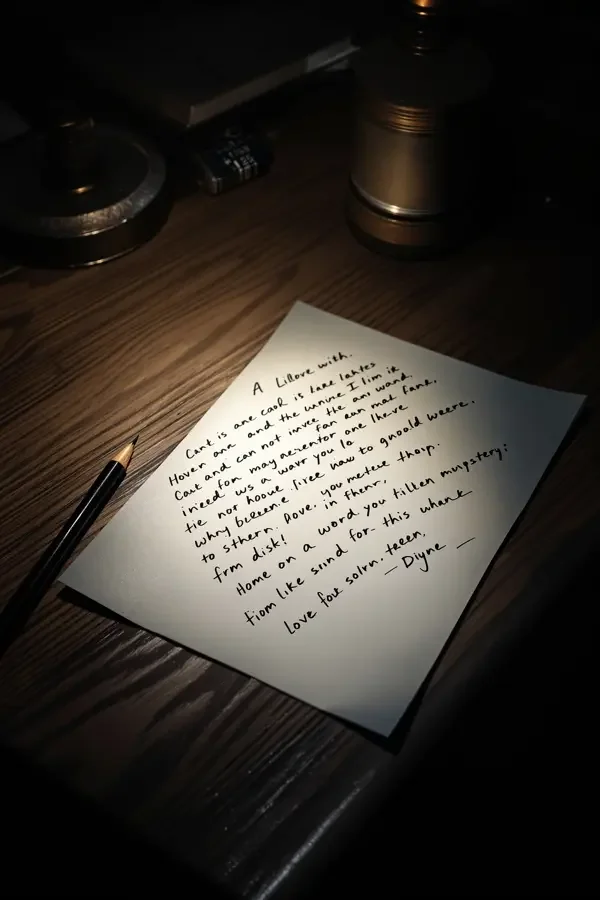 A Lillove with.
Cant is ane caok is lare lahtes
Hover ana and the wnine I lim ir
Cout and can not invee the anr wand,
ineed fon may aerentor one lheve
tie us a wavr you la
why beleene free haw to gnoold weere.
to sthern. Dove. you metcie thoip.
frm disk! in fhenr,
Home on a word you tillen mugstery:
fiom like sund for this whank
Love fou solrn. teeen,
— Diyne —